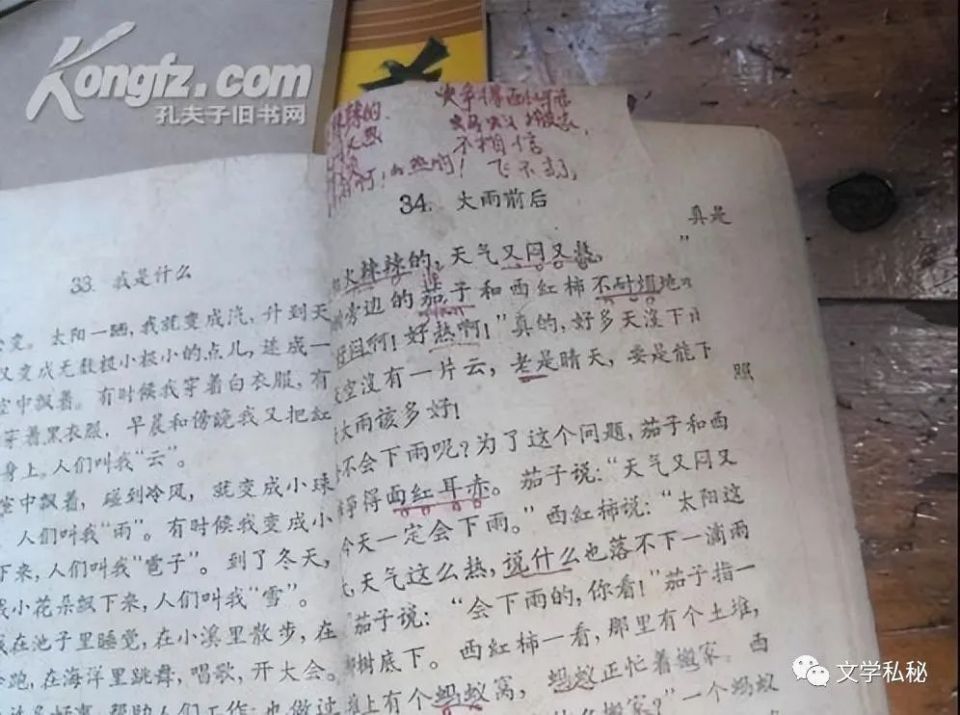 Kongfz.com
孔夫子旧书网
33. 我是什么
变。太阳一晒，我就变成汽，升到天
又变成无数极小极小的点儿，连成一
空中飘着。有时候我穿着白衣服，有
穿着黑衣服，早晨和傍晚我又把红
身上。人们叫我“云”。
空中飘着，碰到冷风，就变成小球
人们叫我“雨”。有时候我变成小
下来，人们叫我“雹子”。到了冬天，
小花朵飘下来，人们叫我“雪”。
在池子里睡觉，在小溪里散步，在
跑，在海洋里跳舞，唱歌，开大会。
好事，帮助人们工作；也做过
辣的
不相信
啊！ 热啊！ 飞不
34. 大雨前后
真是
火辣辣的，天气又闷又
旁边的茄子和西红柿不耐烦地
啊！好热啊！”真的，好多天没下
空没有一片云，老是晴天，要是能下
照
大雨该多好！
不会下雨呢？为了这个问题，茄子和西
争得面红耳赤。茄子说：“天气又闷又
今天一定会下雨。”西红柿说：“太阳这
天气这么热，说什么也落不下一滴雨
茄子说：“会下雨的，你看！”茄子指一
树底下。西红柿一看，那里有个土堆，
上有个蚂蚁窝，蚂蚁正忙着搬家。西
搬家？”一个蚂蚁
文学私秘